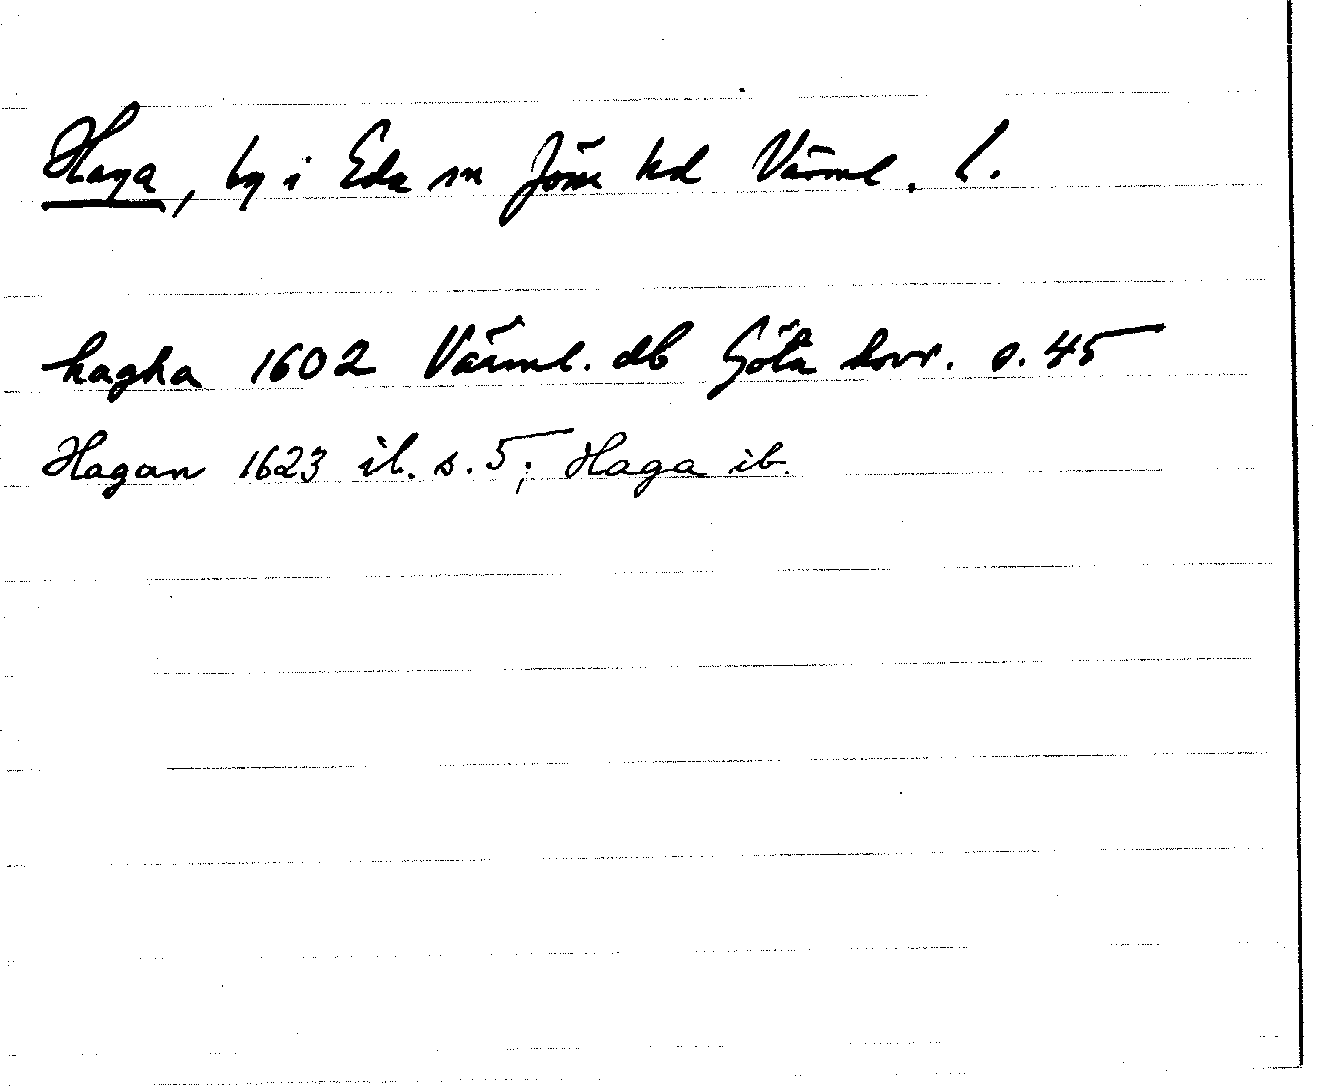 Haga, by i Eda sn Jöss hd Värml. l.
hagha 1602 Värml. db Göta hovr. s. 45
Hagan 1623 ib. s. 5; Haga ib.